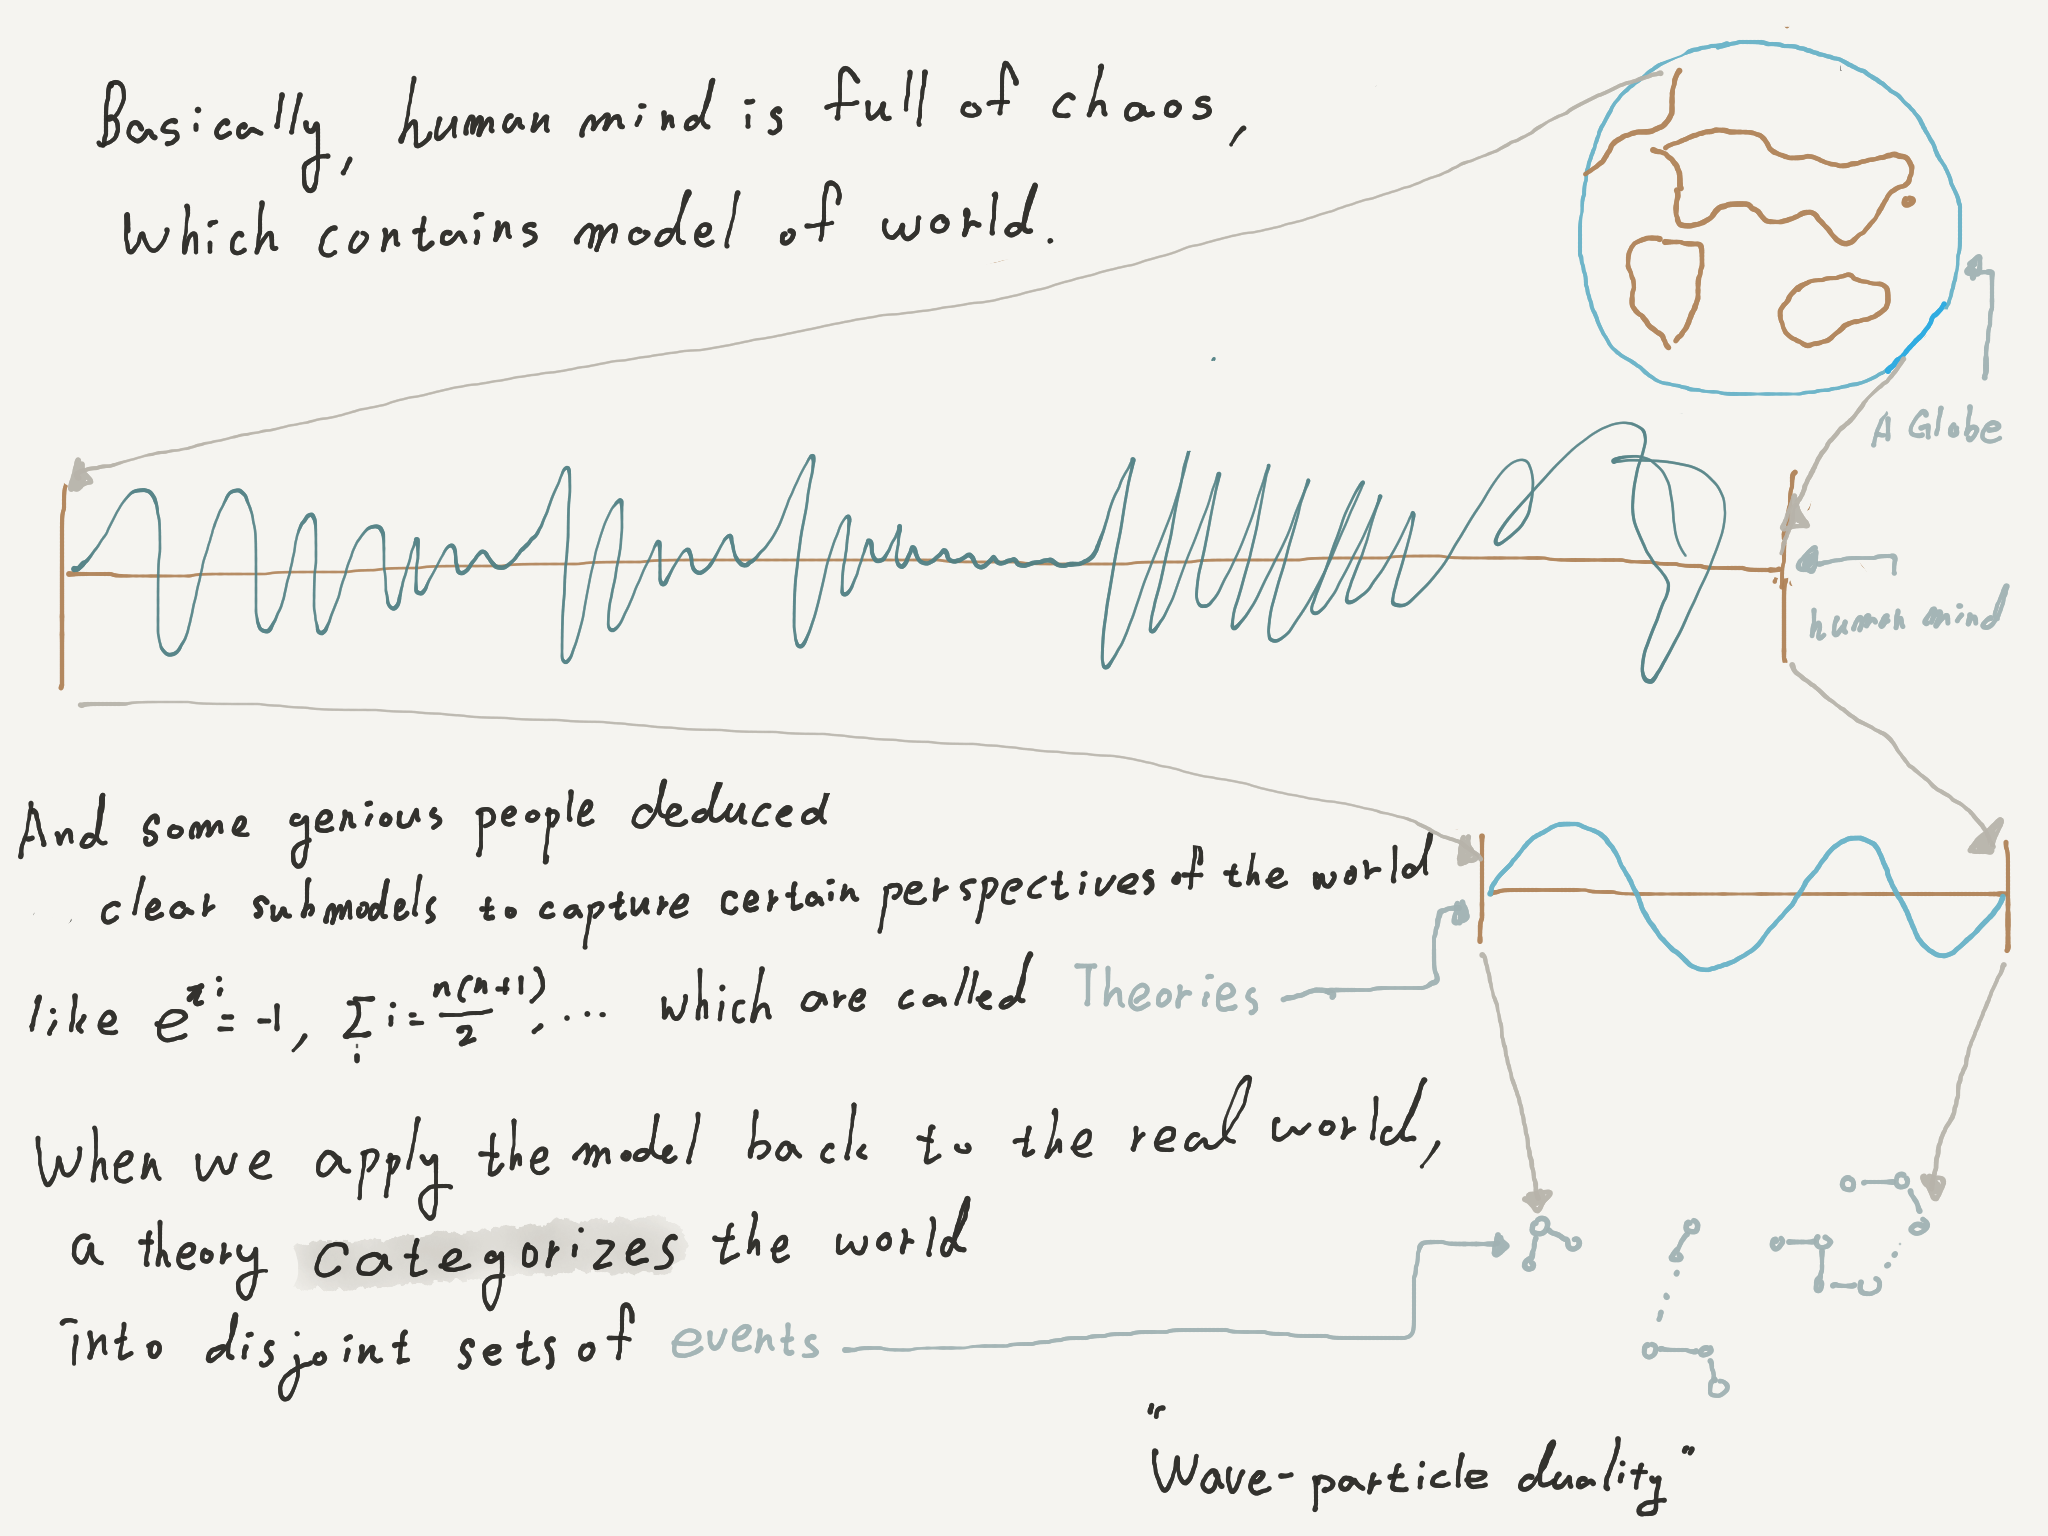 Basically, human mind is full of chaos,
which contains model of world.
A Globe
human mind
And some genious people deduced
clear submodels to capture certain perspectives of the world
like e^πi = -1, ∑_i i = n(n+1)/2, ... which are called Theories
When we apply the model back to the real world,
a theory categorizes the world
into disjoint sets of events
"Wave-particle duality"